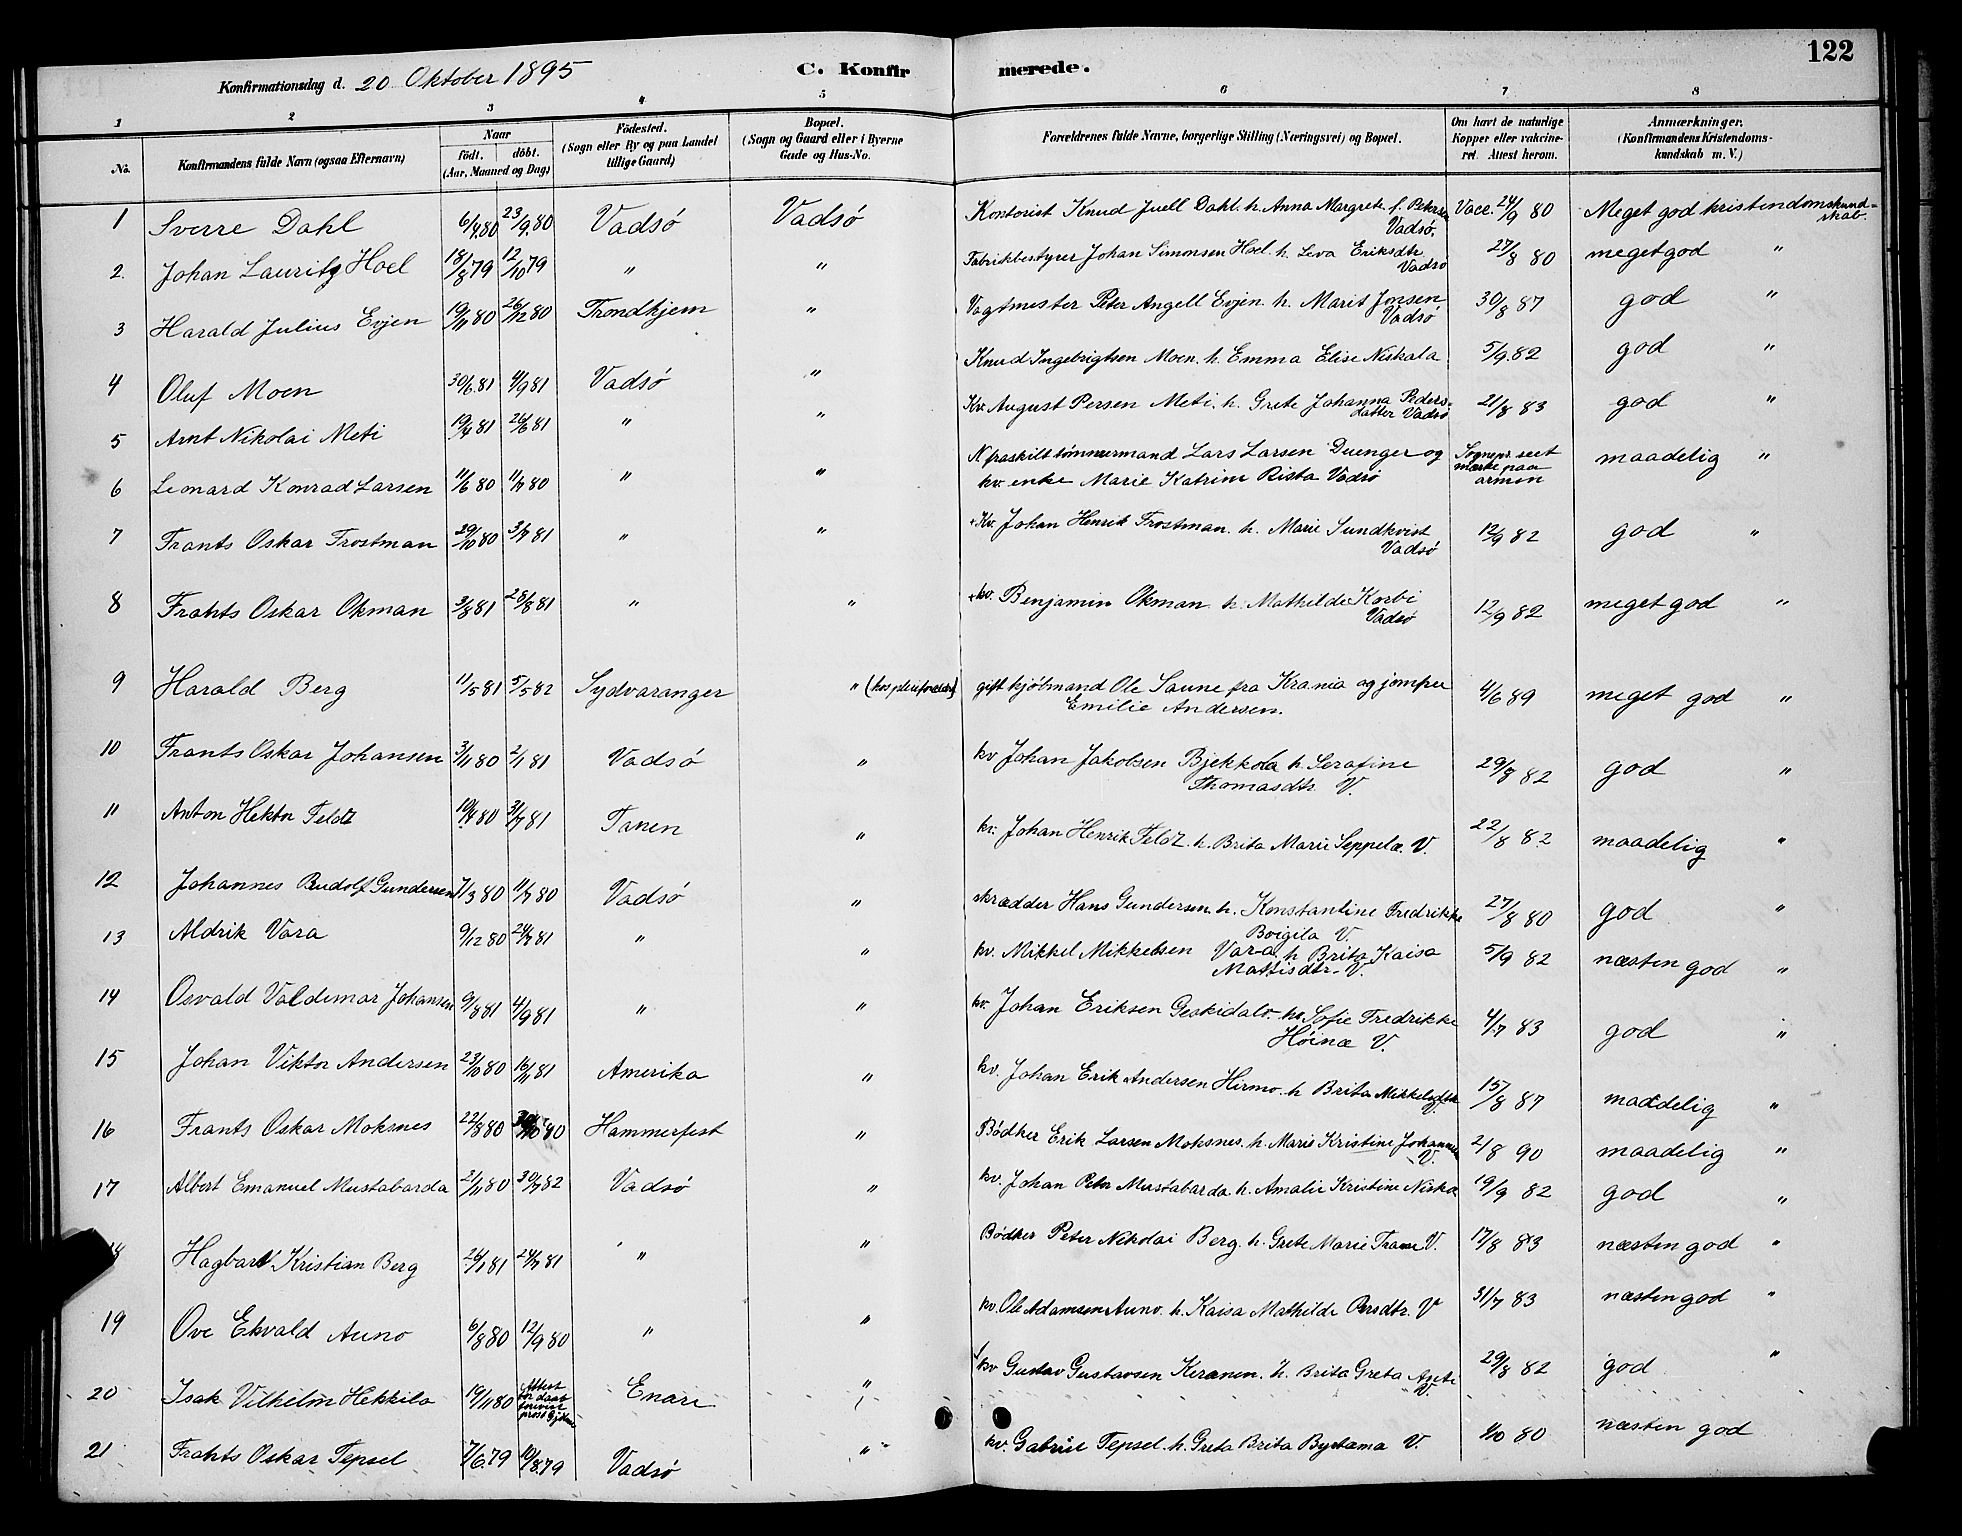 122
Konfirmationsdag d. 20 Oktober 1895 C. Konfirmerede.
1 2 3 4 5 6 7 8
No. Konfirmandens fulde Navn (ogsaa Efternavn) Naar født. døbt. (Aar, Maaned og Dag) Fødested. (Sogn eller By og paa Landet tillige Gaard) Bopæl. (Sogn og Gaard eller i Byerne Gade og Hus-No. Forældrenes fulde Navne, borgerlige Stilling (Næringsvei) og Bopæl. Om havt de naturlige Kopper eller vakcineret. Attest herom. Anmærkninger. (Konfirmandens Kristendomskundskab m. V.)
1 Sverre Dahl 6/4 80 23/9 80 Vadsø Vadsø Kontorist Knud Juell Dahl. h. Anna Margrete f. Petersen Vadsø. Vacc. 24/9 80 Meget god kristendomskundskab.
2. Johan Lauritz Hoel 18/8 79 12/10 79 " " Fabrikbestyrer Johan Simonsen Hoel. h. Leva Eriksdtr. Vadsø 27/8 80 meget god "
3 Harald Julius Evjen 19/11 80 26/12 80 Trondhjem " Vagtmester Peter Angell Evjen. h. Marit Jonsen Vadsø 30/8 87 god "
4 Oluf Moen 30/6 81 4/9 81 Vadsø " Knud Ingebrigtsen Moen. h. Emma Elise Niskala 5/9 82 god "
5 Arnt Nikolai Meti 19/4 81 26/6 81 " " Kv. August Persen Meti. h. Grete Johanna Pedersdatter Vadsø 21/8 83 god "
6 Leonard Konrad Larsen 11/6 80 11/7 80 " " N fraskilt tømmermand Lars Larsen Duenger og kv. enke Marie Katrine Rista Vadsø Sognepr. seet mærke paa armen maadelig "
7 Frants Oskar Trostman 29/10 80 3/7 81 " " Kv. Johan Henrik Trostman. h. Marie Sundkvist Vadsø 12/9 82 god "
8 Frants Oskar Okman 3/8 81 28/8 81 " " kv. Benjamin Okman. h. Mathilde Korbi Vadsø 12/9 82 meget god "
9 Harald Berg 11/5 81 5/5 82 Sydvaranger " (hos pleieforældre) gift kjøbmand Ole Saune fra Krania og jomfru Emilie Andersen. 4/6 89 meget god "
10 Frants Oskar Johansen 3/11 80 2/1 81 Vadsø " kv Johan Jakobsen Bjekkola h. Serafine Thomasdtr. V. 29/8 82 god "
11 Anton Hektor Feldt 10/4 80 31/7 81 Tanen " kv. Johan Henrik Feldt. h. Brita Marie Seppelæ. V. 22/8 82 maadelig "
12 Johannes Rudolf Gundersen 7/3 80 11/7 80 Vadsø " skrædder Hans Gundersen. h. Konstantine Fredrikke Boigila V. 27/8 80 god "
13 Aldrik Vara 9/12 80 24/7 81 " " kv. Mikkel Mikkelsen Vara h Brita Kaisa Mattisdtr. V. 5/9 82 næsten god "
14 Osvald Valdemar Johansen 9/8 81 4/9 81 " " kv. Johan Eriksen Geskidalo. h. Sofie Fredrikke Høinæ V. 4/7 83 god "
15 Johan Viktor Andersen 23/10 80 16/11 81 Amerika " kv. Johan Erik Andersen Hirmo. h Brita Mikkelsdtr V. 15/8 87 maadelig "
16 Frants Oskar Moksnes 22/8 80 80 Hammerfest " Bødker Erik Larsen Moksnes. h. Marie Kristine Johannsen V. 2/8 90 maadelig "
17 Albert Emanuel Mustabarda 21/11 80 30/7 82 Vadsø " kv. Johan Peter Mustabarda h. Amalie Kristine Niska 19/9 82 god "
18 Hagbart Kristian Berg 26/1 81 24/7 81 " " Bødker Peter Nikolai Berg. h. Grete Marie Trane V. 17/8 83 næsten god "
19 Ove Ekvald Auno 6/8 80 12/9 80 " " kv. Ole Adamsen Auno. h. Kaisa Mathilde Persdtr. V 31/7 83 næsten god "
20 Isak Vilhelm Hekkila 19/11 80 Attest for daab Enare " kv Gustav Gustavsen Keranen. h. Brita Greta V. 29/8 82 god "
21 Frants Oskar Tepsel 7/6 79 10/8 79 Vadsø " kv. Gabriel Tepsel. h. Greta Brita Byrtama V. 1/10 80 næsten god